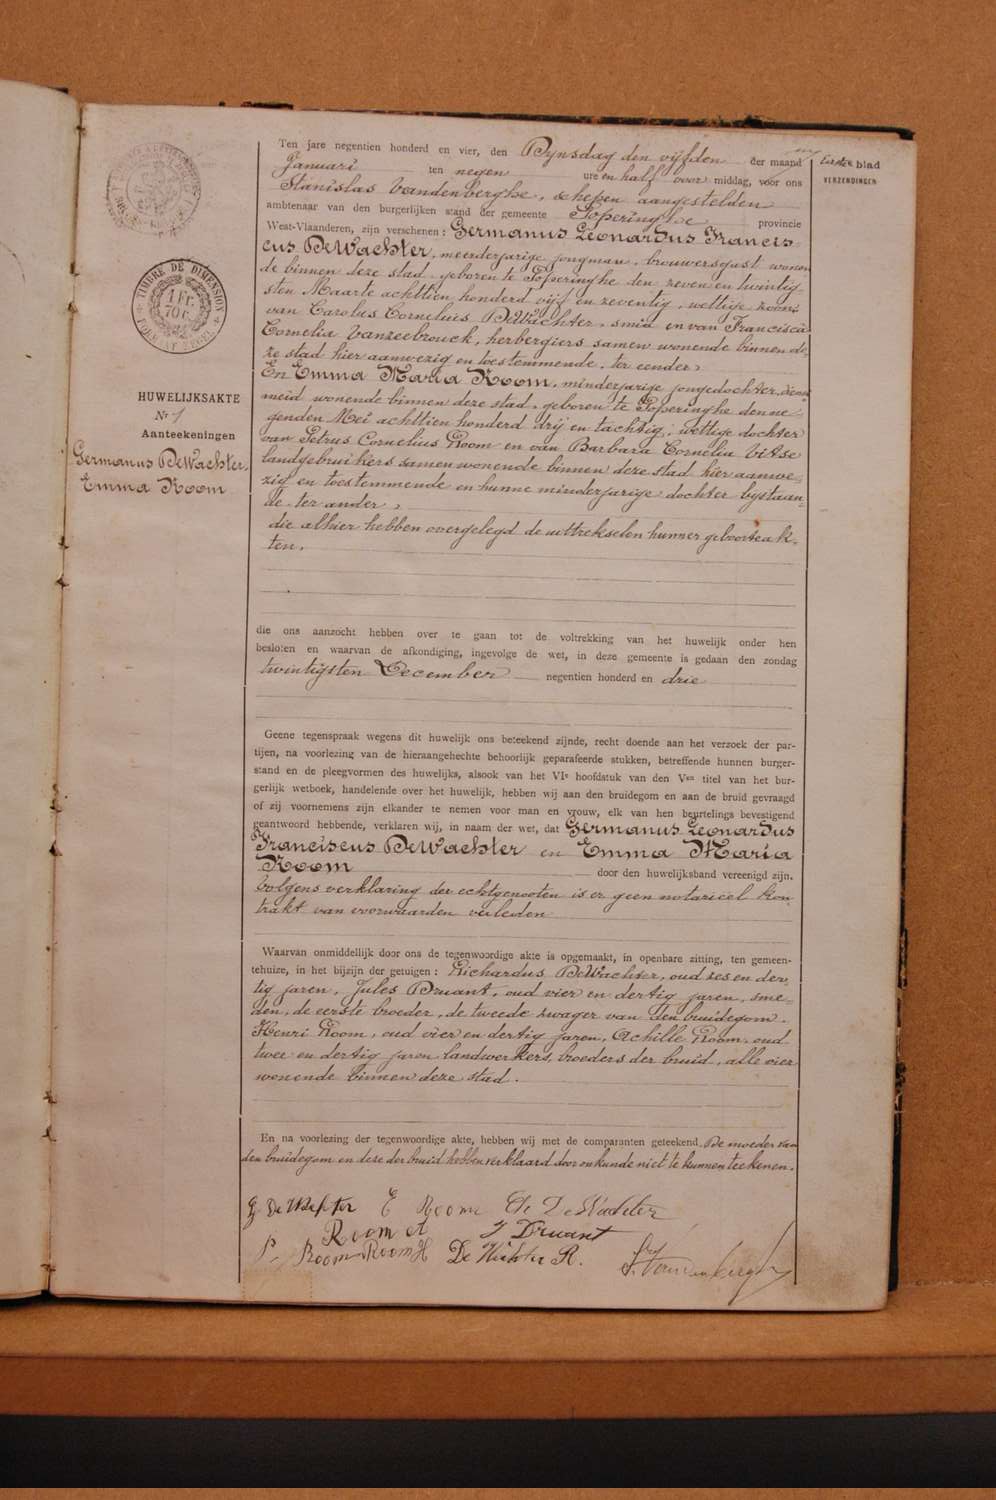 Eerste blad
VERZENDINGEN
TIMBRE DE DIMENSION
1 Fr.
70 c.
FORMAAT ZEGEL
HUWELIJKSAKTE
Nr 1
Aanteekeningen
Germanus DeWachter,
Emma Room
Ten jare negentien honderd en vier, den Dynsdag den vijfden der maand
Januari ten negen ure en half voor middag, voor ons
Stanislas Vandenberghe, schepen aangestelden
ambtenaar van den burgerlijken stand der gemeente Poperinghe provincie
West-Vlaanderen, zijn verschenen : Germanus Leonardus Francis
cus DeWachter, meerderjarige jongman, brouwersgast wonen
de binnen deze stad, geboren te Poperinghe den zeven en twintig
sten Maarte achttien honderd vijf en zeventig, wettige zoon
van Carolus Cornelius DeWachter, smid en van Francisca
Cornelia Vanzeebrouck, herbergiers samen wonende binnen de-
ze stad hier aanwezig en toestemmende, ter eender
En Emma Maria Room, minderjarige jongedochter, dienst
meid wonende binnen deze stad, geboren te Poperinghe den ne-
genden Mei achttien honderd drij en tachtig, wettige dochter
van Petrus Cornelius Room en van Barbara Cornelia Vitse
landgebruikers samen wonende binnen deze stad hier aanwe-
zig en toestemmende en hunne minderjarige dochter bystaan-
de, ter ander,
die alhier hebben overgelegd de uittrekselen hunner geboorteak-
ten.
die ons aanzocht hebben over te gaan tot de voltrekking van het huwelijk onder hen
besloten en waarvan de afkondiging, ingevolge de wet, in deze gemeente is gedaan den zondag
twintigsten December negentien honderd en drie
Geene tegenspraak wegens dit huwelijk ons beteekend zijnde, recht doende aan het verzoek der par-
tijen, na voorlezing van de hieraangehechte behoorlijk geparafeerde stukken, betreffende hunnen burger-
stand en de pleegvormen des huwelijks, alsook van het VIe hoofdstuk van den Ven titel van het bur-
gerlijk wetboek, handelende over het huwelijk, hebben wij aan den bruidegom en aan de bruid gevraagd
of zij voornemens zijn elkander te nemen voor man en vrouw, elk van hen beurtelings bevestigend
geantwoord hebbende, verklaren wij, in naam der wet, dat Germanus Leonardus
Franciscus DeWachter en Emma Maria
Room door den huwelijksband vereenigd zijn.
Volgens verklaring der echtgenooten is er geen notarieel kon-
trakt van voorwaarden verleden
Waarvan onmiddellijk door ons de tegenwoordige akte is opgemaakt, in openbare zitting, ten gemeen-
tehuize, in het bijzijn der getuigen : Richardus DeWachter, oud zes en der-
tig jaren, Jules Druant, oud vier en dertig jaren, sme-
den, de eerste broeder, de tweede zwager van den bruidegom.
Henri Room, oud vier en dertig jaren, Achille Room, oud
twee en dertig jaren landwerkers, broeders der bruid, alle vier
wonende binnen deze stad.
En na voorlezing der tegenwoordige akte, hebben wij met de comparanten geteekend. De moeder van
den bruidegom en deze der bruid hebben verklaard door onkunde niet te kunnen teekenen.
G. De Wachter E Room Ch De Wachter
Room A J Druant
P. Room Room H De Wachter R. St Vandenberghe